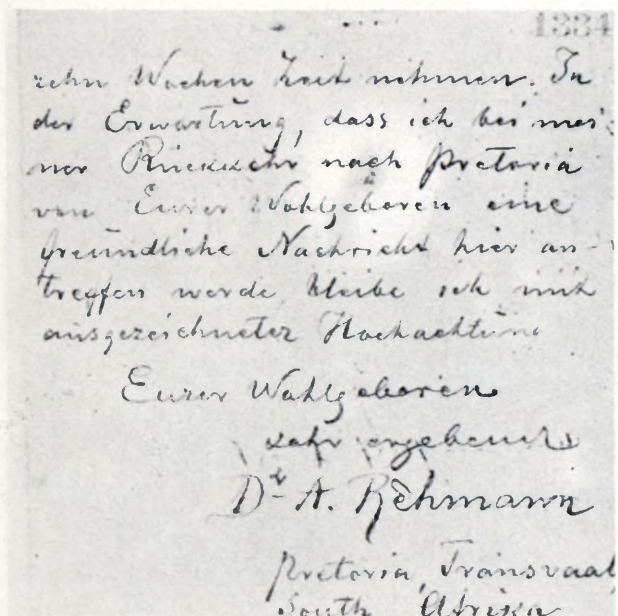 1334
zehn Wochen Zeit nehmen. In
der Erwartung, dass ich bei mei-
ner Rückkehr nach Pretoria
von Eurer Wohlgeboren eine
freundliche Nachricht hier an-
treffen werde, bleibe ich mit
ausgezeichneter Hochachtung
Eurer Wohlgeboren
sehr ergebenster
Dr A. Rehmann
Pretoria, Transvaal
South Afrika